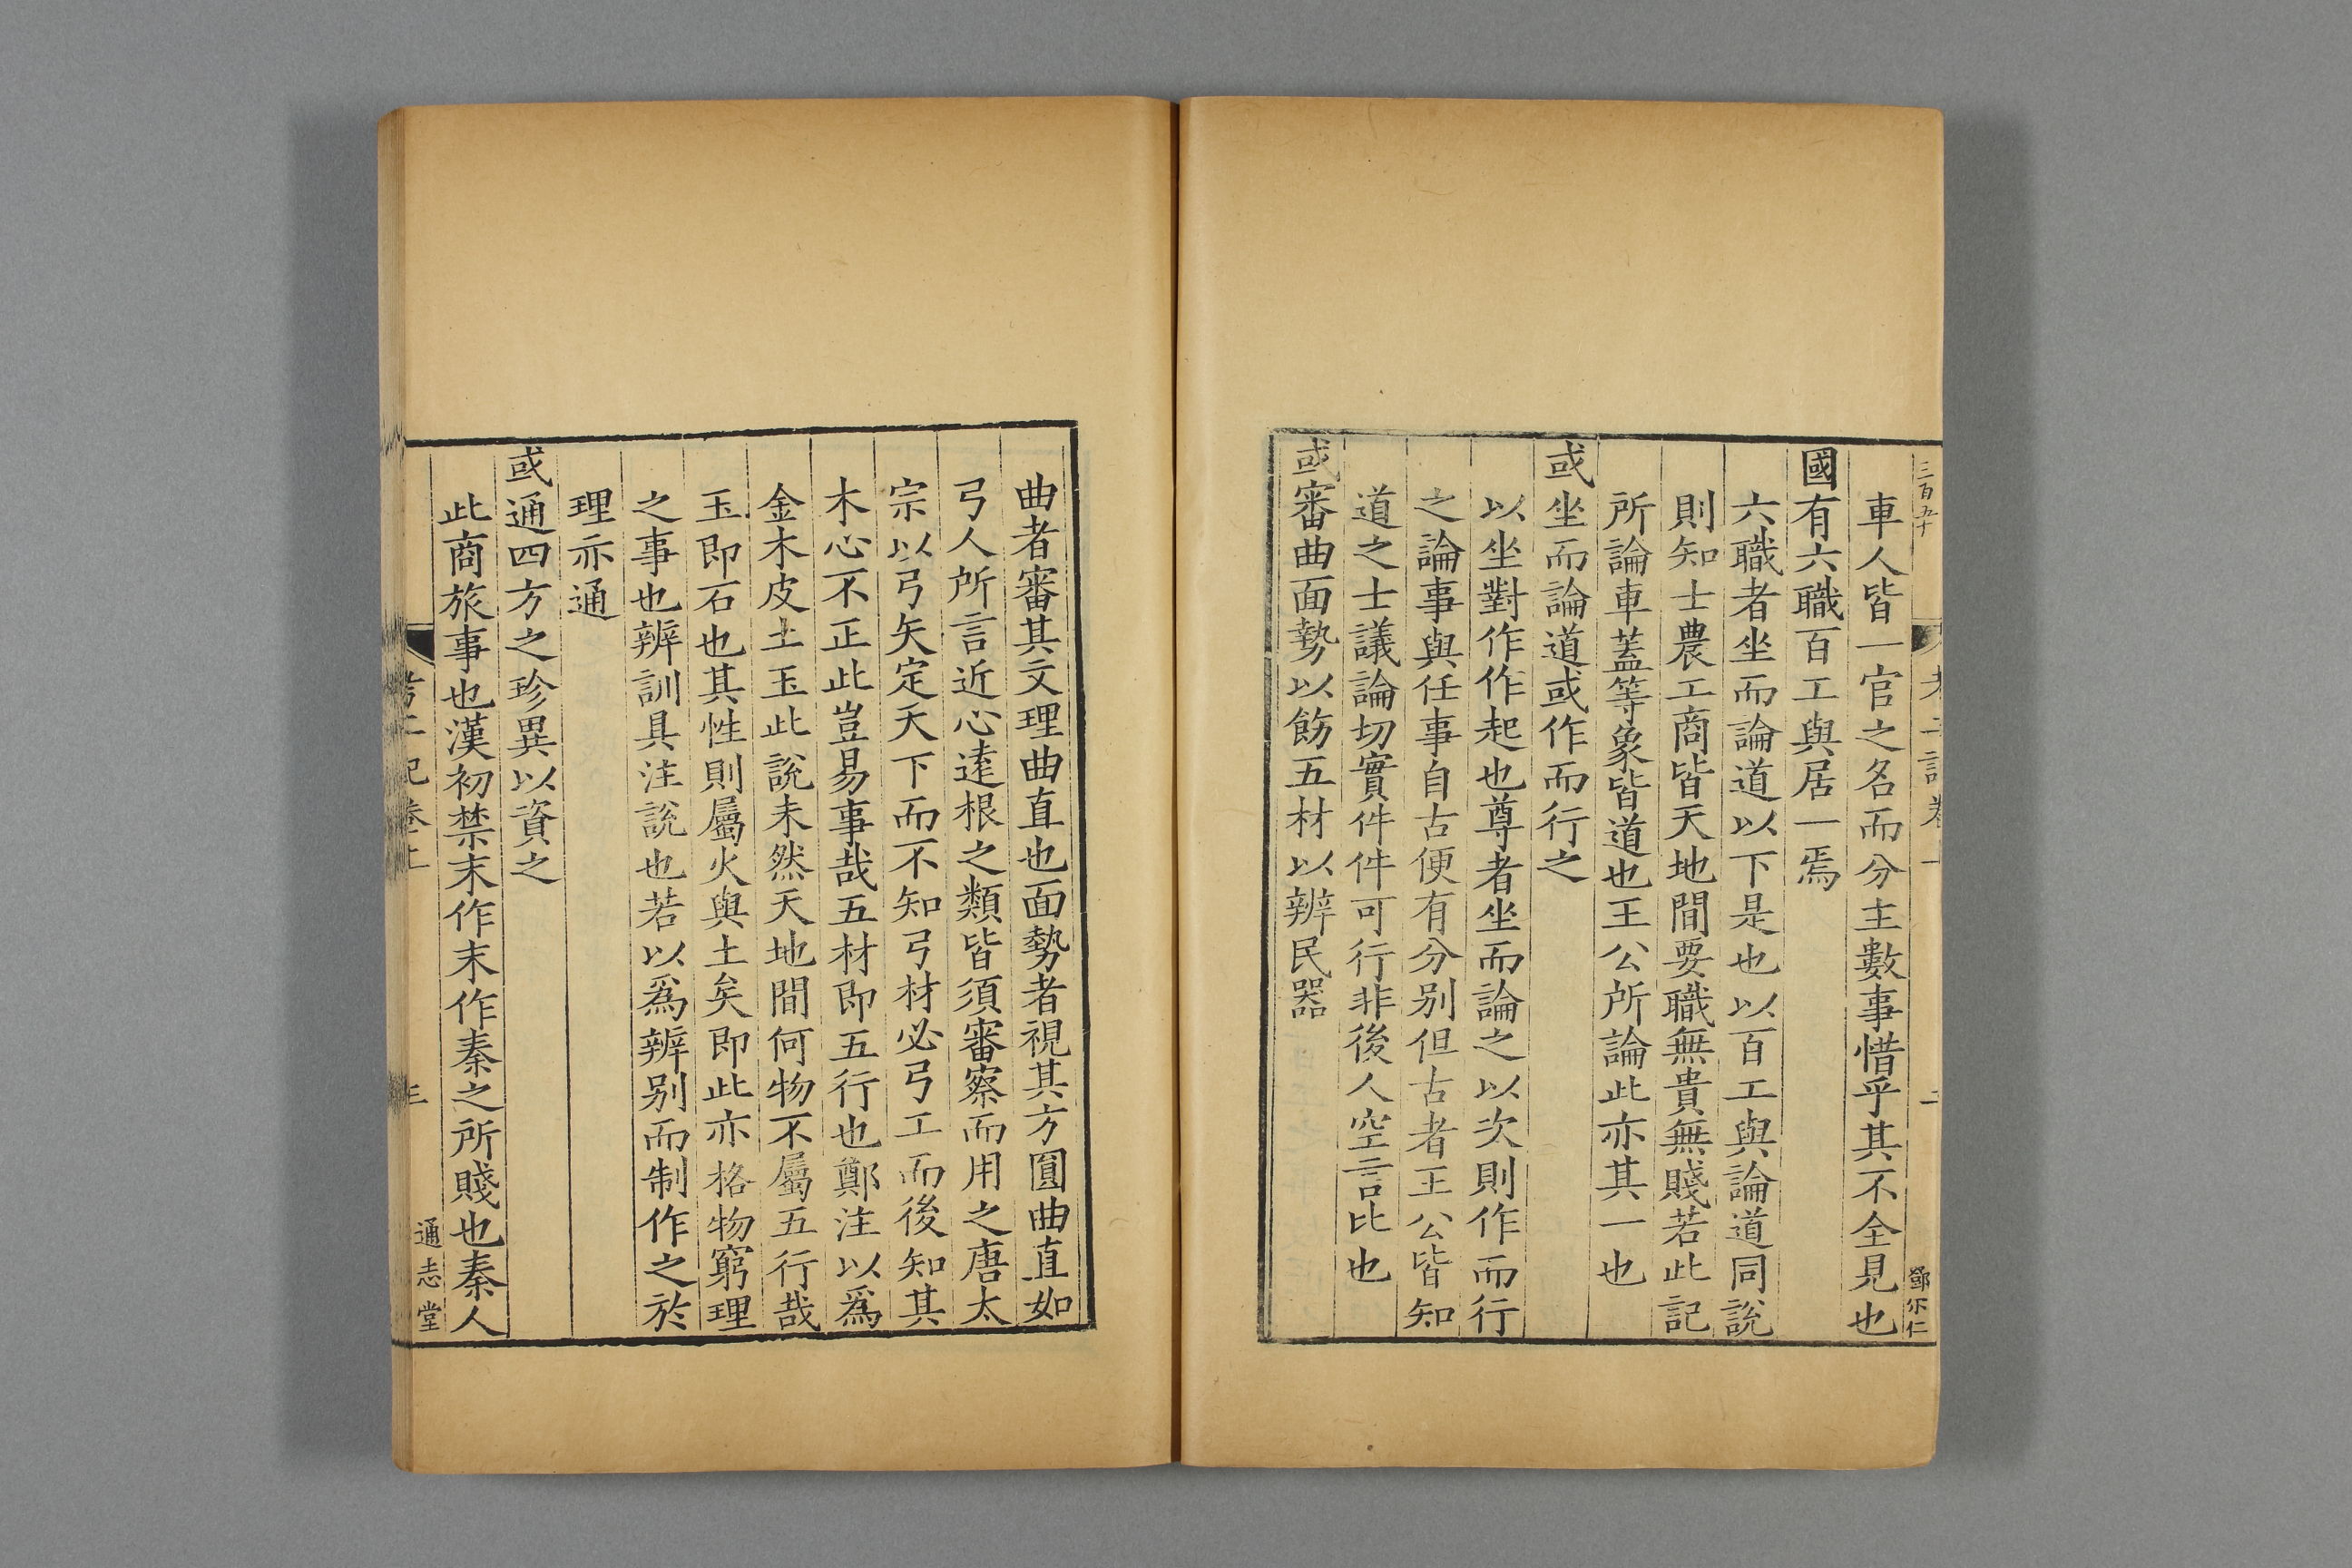 三百五十
鄧尔仁
車人皆一官之名而分主數事惜乎其不全見也
國有六職百工與居一焉
六職者坐而論道以下是也以百工與論道同說
則知士農工商皆天地間要職無貴無賤若此記
所論車蓋等象皆道也王公所論此亦其一也
或坐而論道或作而行之
以坐對作作起也尊者坐而論之以次則作而行
之論事與任事自古便有分别但古者王公皆知
道之士議論切實件件可行非後人空言比也
或審曲面勢以飭五材以辨民器
曲者審其文理曲直也面勢者視其方圓曲直如
弓人所言近心達根之類皆須審察而用之唐太
宗以弓矢定天下而不知弓材必弓工而後知其
木心不正此豈易事哉五材即五行也鄭注以為
金木皮土玉此說未然天地間何物不屬五行哉
玉即石也其性則屬火與土矣即此亦格物窮理
之事也辨訓具注說也若以為辨别而制作之於
理亦通
或通四方之珍異以資之
此商旅事也漢初禁末作末作秦之所賤也秦人
考工記卷上
三
通志堂